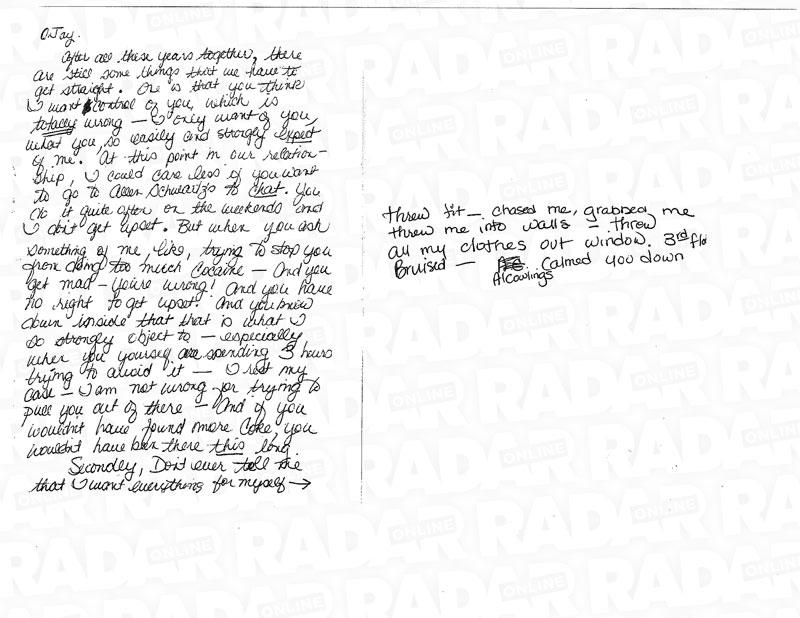 O.Jay.
After all these years together, there
are still some things that we have to
get straight. One is that you think
I want control of you, which is
totally wrong — I only want of you,
what you, so easily and strongly expect
of me. At this point in our relation-
ship, I could care less if you want
to go to Allen Schwartz's to chat. You
do it quite often on the weekends and
I don't get upset. But when you ask
something of me, like, trying to stop you
from doing too much Cocaine — And you
get mad — you're wrong! And you have
no right to get upset. And you know
down inside that that is what I
so strongly object to — especially
when you yourself are spending 3 hours
trying to avoid it — I rest my
case — I am not wrong for trying to
pull you out of there — And if you
wouldn't have found more Coke, you
wouldn't have been there this long.
Secondly, Don't ever tell me
that I want everything for myself →
threw fit — chased me, grabbed me
threw me into walls — threw
all my clothes out window. 3rd flo
Bruised — Calmed you down
Al Cowlings
RADAR
ONLINE